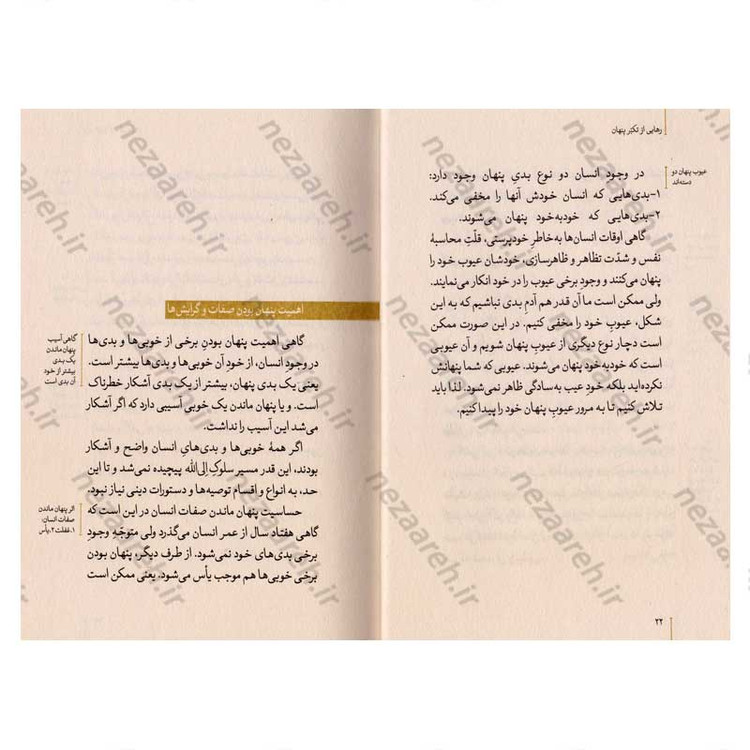 رهایی از تکبّر پنهان
عیوب پنهان دو
دسته‌اند
در وجود انسان دو نوع بدیِ پنهان وجود دارد:
۱-بدی‌هایی که انسان خودش آنها را مخفی می‌کند.
۲-بدی‌هایی که خودبه‌خود پنهان می‌شوند.
گاهی اوقات انسان‌ها به‌خاطر خودپرستی، قلّتِ محاسبهٔ
نفس و شدّت تظاهر و ظاهرسازی، خودشان عیوب خود را
پنهان می‌کنند و وجودِ برخی عیوب را در خود انکار می‌نمایند.
ولی ممکن است ما آن قدر هم آدمِ بدی نباشیم که به این
شکل، عیوبِ خود را مخفی کنیم. در این صورت ممکن
است دچار نوع دیگری از عیوبِ پنهان شویم و آن عیوبی
است که خودبه‌خود پنهان می‌شوند. عیوبی که شما پنهانش
نکرده‌اید بلکه خودِ عیب به‌سادگی ظاهر نمی‌شود. لذا باید
تلاش کنیم تا به مرور عیوبِ پنهان خود را پیدا کنیم.
۲۲
اهمیت پنهان بودن صفات و گرایش‌ها
گاهی آسیب
پنهان ماندن
یک بدی
بیشتر از خود
آن بدی است
گاهی اهمیت پنهان بودنِ برخی از خوبی‌ها و بدی‌ها
در وجود انسان، از خودِ آن خوبی‌ها و بدی‌ها بیشتر است.
یعنی یک بدی پنهان، بیشتر از یک بدی آشکار خطرناک
است. و یا پنهان ماندن یک خوبی آسیبی دارد که اگر آشکار
می‌شد این آسیب را نداشت.
اگر همهٔ خوبی‌ها و بدی‌های انسان واضح و آشکار
بودند، این قدر مسیر سلوکِ اِلی‌الله پیچیده نمی‌شد و تا این
حد، به انواع و اقسام توصیه‌ها و دستورات دینی نیاز نبود.
اثر پنهان ماندن
صفات انسان:
۱.غفلت ۲.یأس
حساسیت پنهان ماندن صفات انسان در این است که
گاهی هفتاد سال از عمر انسان می‌گذرد ولی متوجّه وجودِ
برخی بدی‌های خود نمی‌شود. از طرف دیگر، پنهان بودن
برخی خوبی‌ها هم موجب یأس می‌شود، یعنی ممکن است
nezaareh.ir